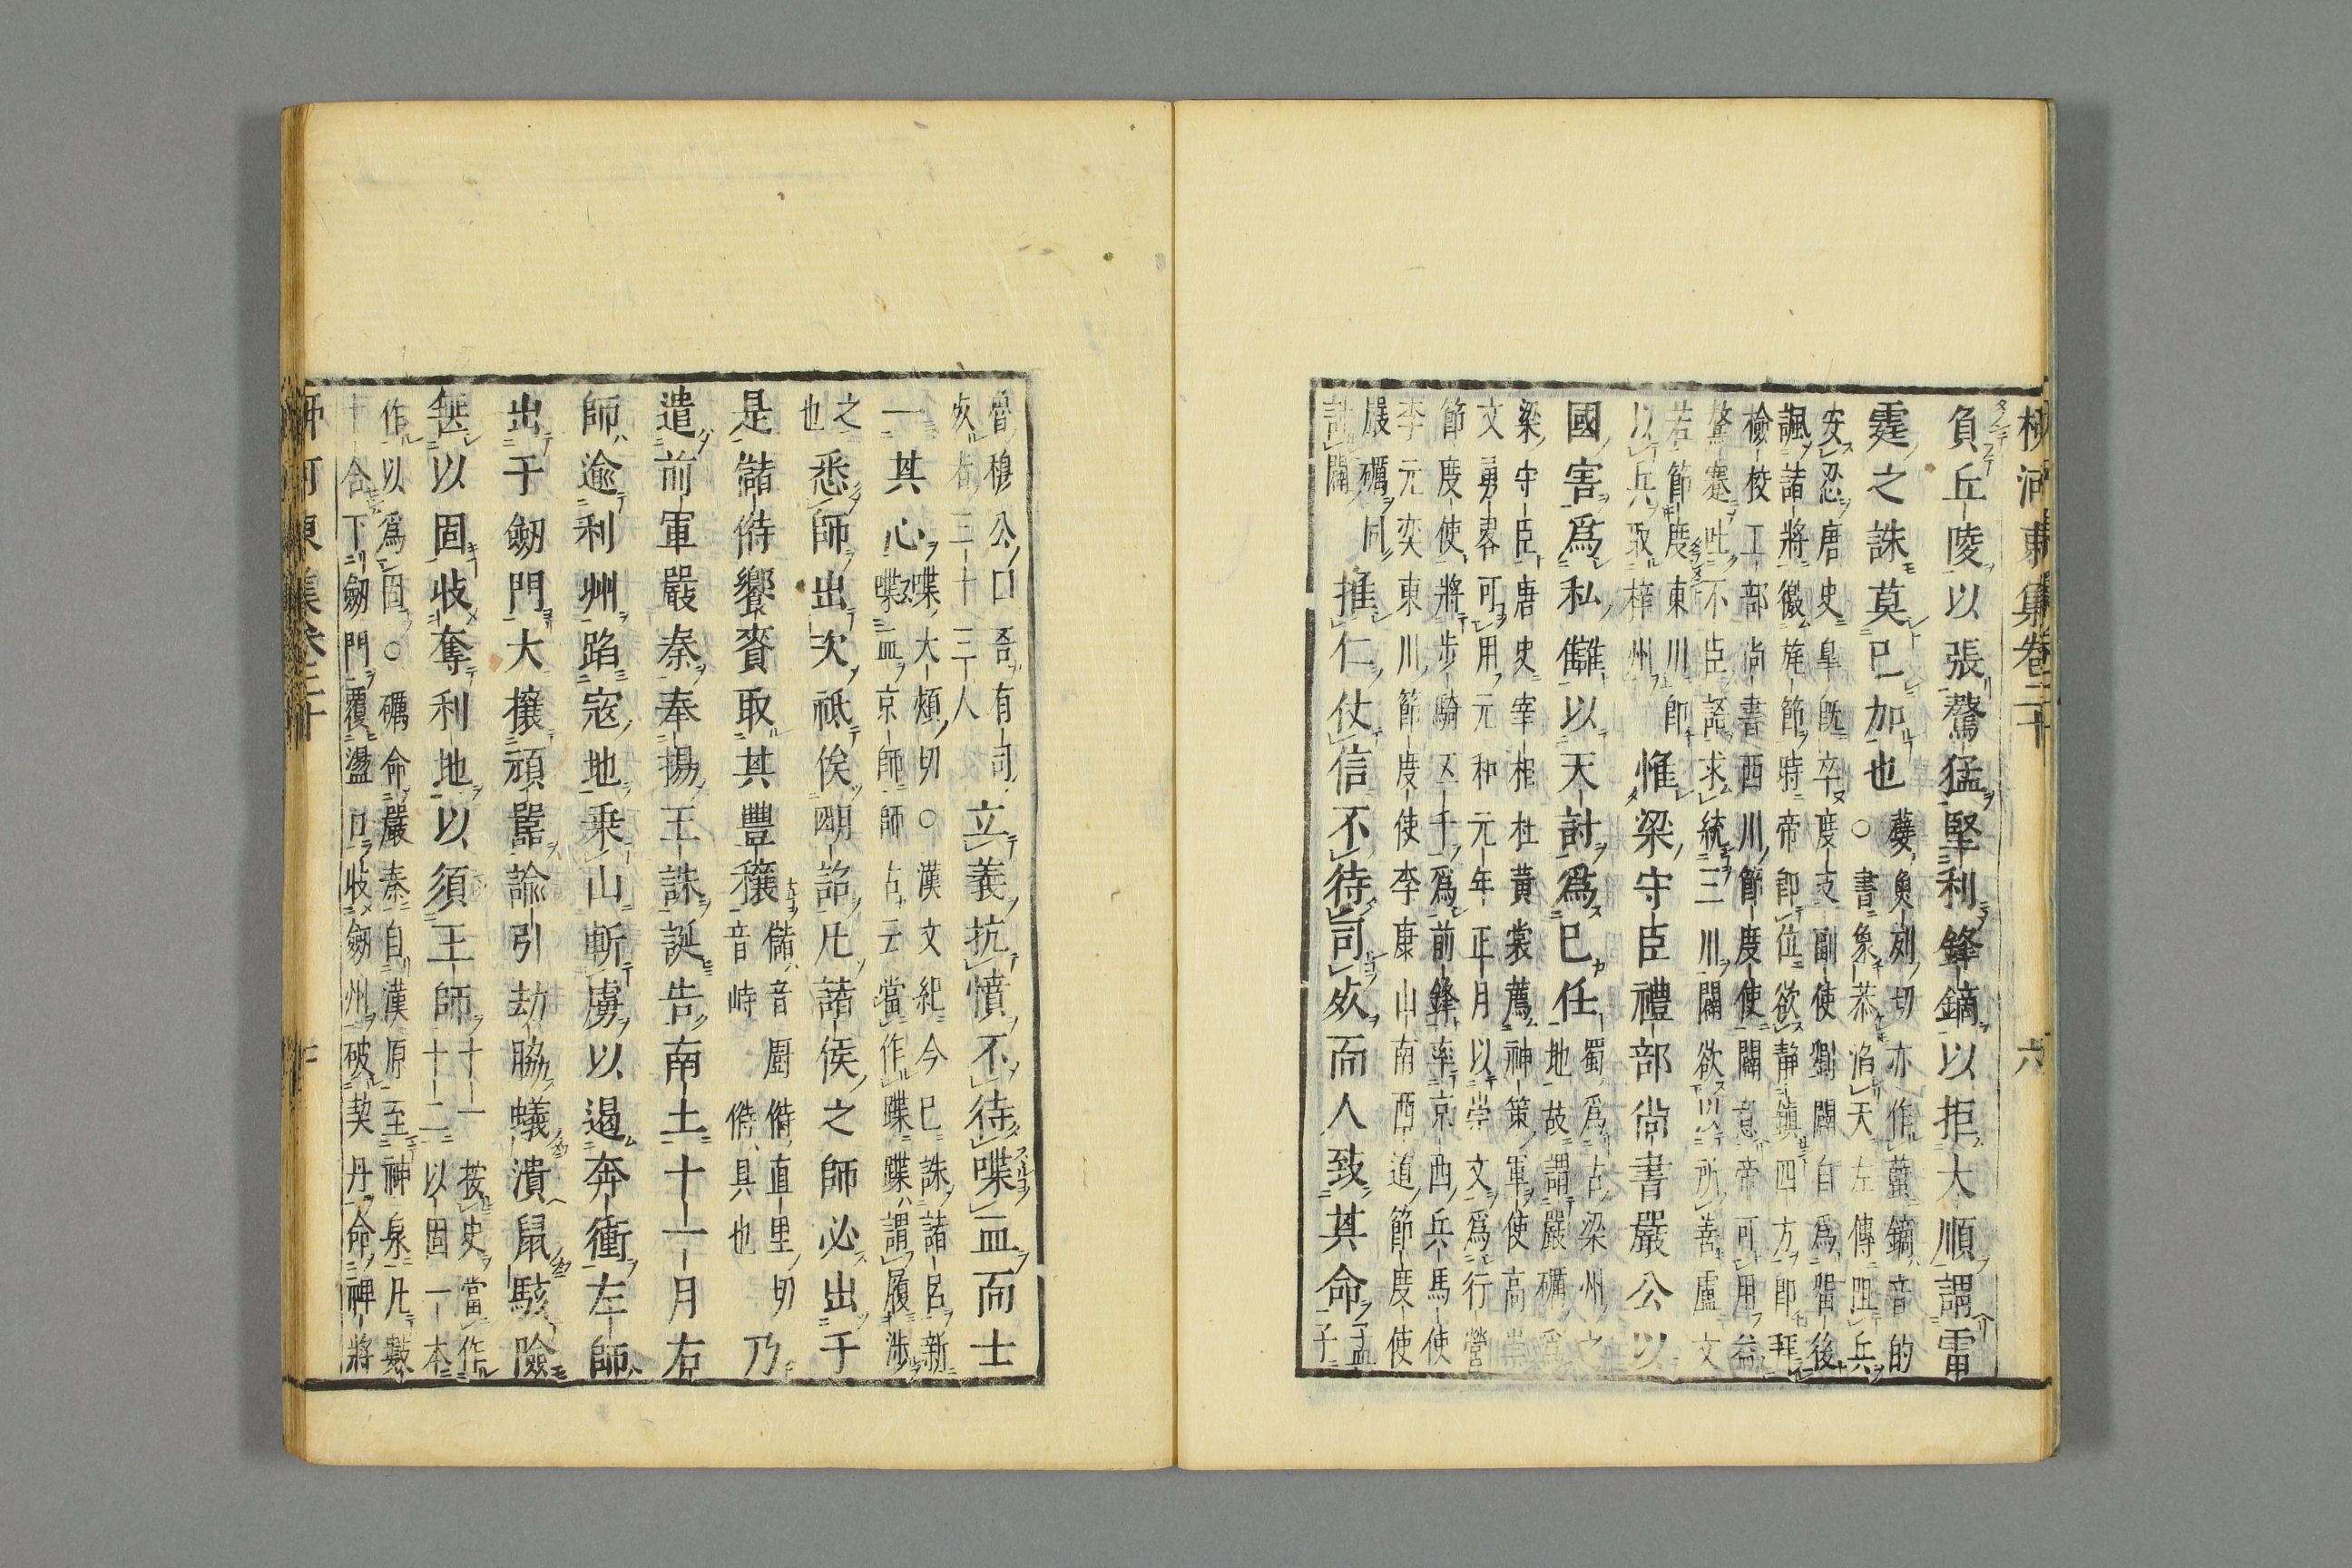 柳河東集卷二十 六
負丘陵以張驁猛堅利鋒鏑以拒大順謂雷
霆之誅莫已加也
驁魚到切亦作蔑鏑音的
○書象恭滔天左傳阻兵
安忍唐史皐既卒度支副使劉闢自為留後
諷諸將徼旄節時帝即位欲靜鎮四方即拜
檢校工部尚書西川節度使闢意帝可用益
驁蹇吐不臣謡求統三川闢欲以所善盧文
若節度東川即
以兵取梓州
惟梁守臣禮部尚書嚴公以
國害爲私讎以天討爲已任
蜀爲古梁州之
地故謂嚴礪爲
梁守臣唐史宰相杜黄裳薦神策軍使高崇
文勇畧可用元和元年正月以崇文爲行營
節度使將步騎五千爲前鋒率京西兵馬使
李元奕東川節度使李康山南西道節度使
嚴礪同
討闢
推仁仗信不待司死而人致其命
孟
子
魯穆公口吾有司
死者三十三人
立義抗憤不待喋血而士
一其心
喋大頰切○漢文紀今已誅諸呂新
喋血京師師古云當作蹀蹀謂履涉
之
也
悉師出次祗俟明詔凡諸侯之師必出于
是儲偫饔賚取其豐穰
儲音厨偫直里切
音峙偫具也
乃
遣前軍嚴秦奉揚王誅誕告南土十一月右
師逾利州蹈寇地乘山斬虜以遏奔衝左師
出于劒門大攘頑嚚諭引劫脇蟻潰鼠駭險
無以固收奪利地以須王師
十一按史當作
十二以固一本
作以爲固○礪命嚴秦自漢原至神泉凡數
十合下劒門覆盪口收劒州破契丹命裨將
柳河東集卷二十